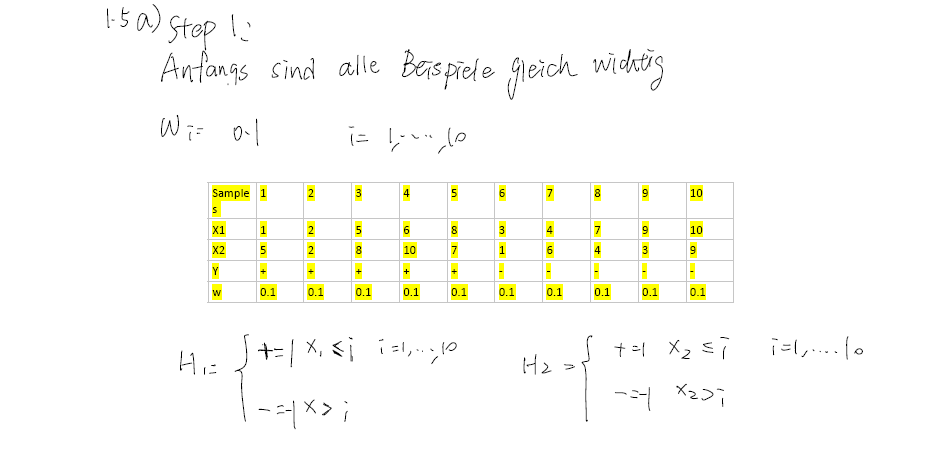 1.5 a) Step 1:
Anfangs sind alle Beispiele gleich wichtig
Wi= 0.1 i= 1,....,10
Samples 1 2 3 4 5 6 7 8 9 10
X1 1 2 5 6 8 3 4 7 9 10
X2 5 2 8 10 7 1 6 4 3 9
Y + + + + + - - - - -
w 0.1 0.1 0.1 0.1 0.1 0.1 0.1 0.1 0.1 0.1
H1= { +=1 X1 ≤ i i=1,...,10
-=-1 X > i
H2 = { +=1 X2 ≤ i i=1,....10
-=-1 X2>i